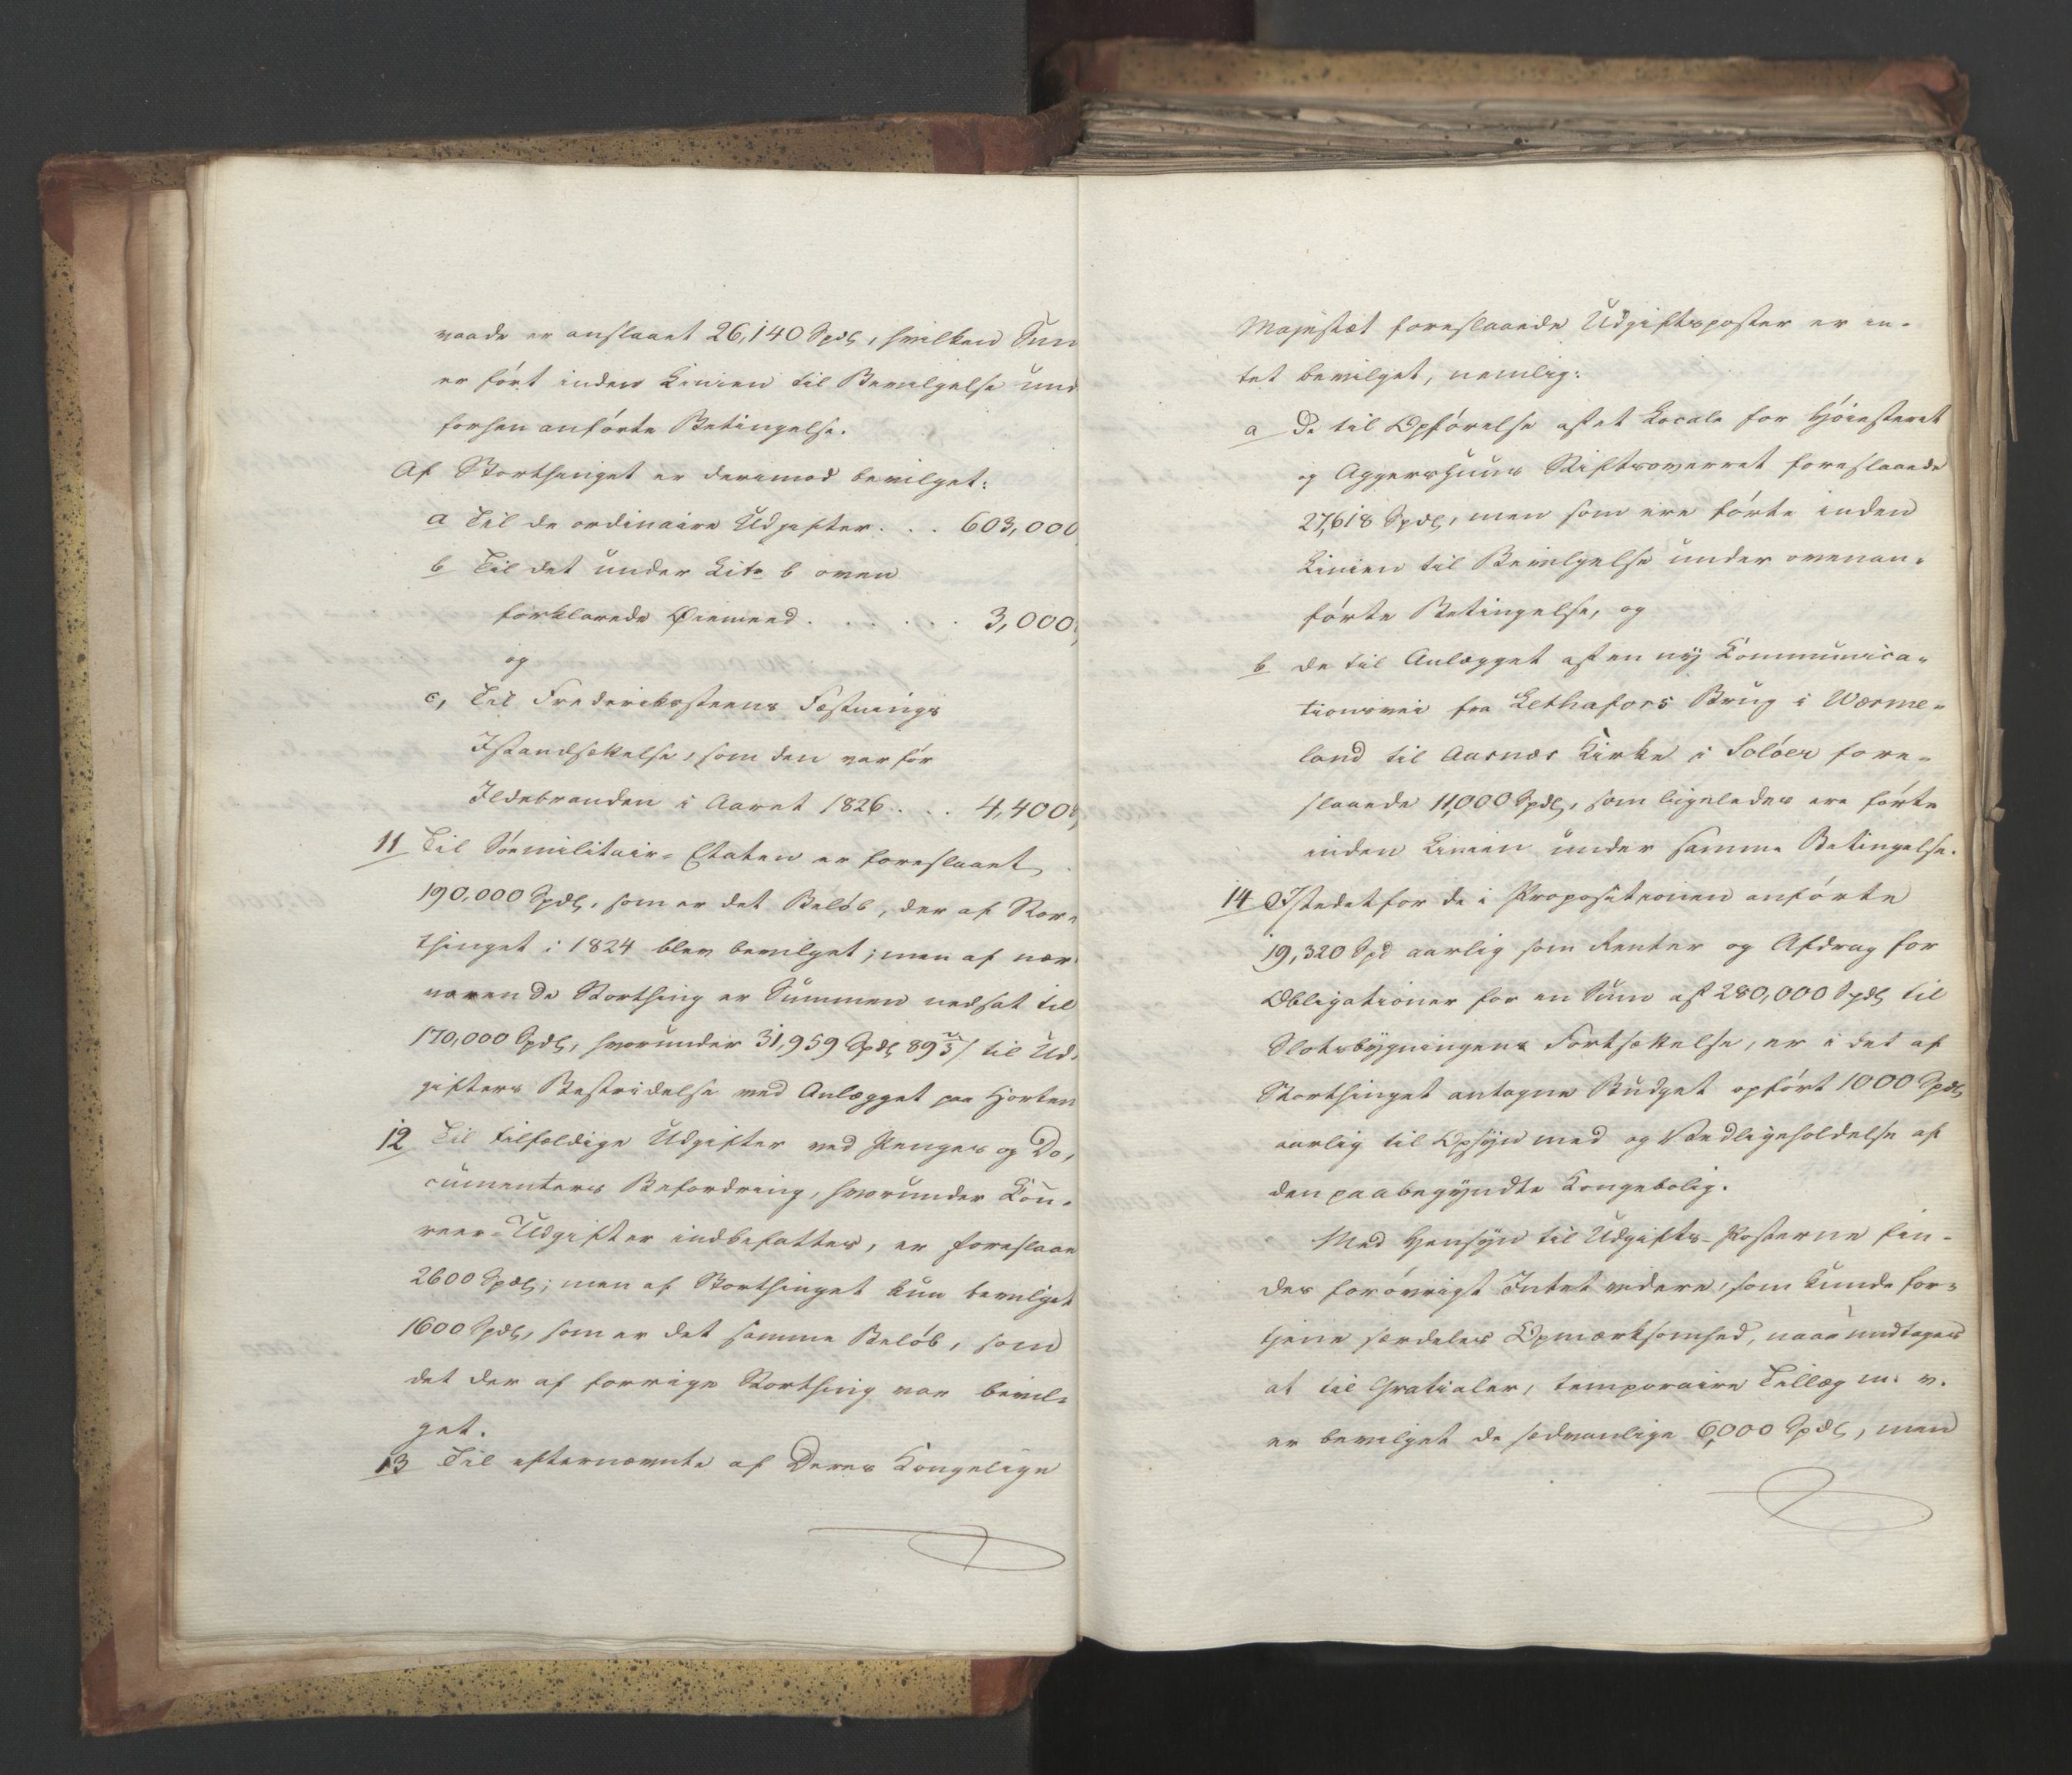 vaade er anslaaet 26,140 Spdl, hvilken Sum
er ført inden Linien til Bevilgelse und
forhen anførte Betingelse.
Af Storthinget er derimod bevilget:
a Til de ordinaire Udgifter. . . 603,000
b Til det under Litr b oven
forklarede Øiemeed . . . . . . 3,000,
og
c, Til Frederiksteens Fæstnings
Istandsættelse, som den var før
Ildebranden i Aaret 1826 . . . 4,400
11 Til Sømilitair-Etaten er foreslaaet
190,000 Spdl, som er det Beløb, der af Stor-
thinget i 1824 blev bevilget; men af nær-
værende Storthing er Summen nedsat til
170,000 Spdl, hvorunder 31,959 Spdl 89 til Ud-
gifters Bestridelse ved Anlægget paa Horten
12 Til tilfældige Udgifter ved Penges og Do-
cumenters Befordring, hvorunder Cou-
reer-Udgifter indbefattes, er foreslaae
2600 Spdl; men af Storthinget kun bevilget
1600 Spdl, som er det samme Beløb, som
det der af forrige Storthing var bevil-
get.
13 Til efternævnte af Deres Kongelige
Majestæt foreslaaede Udgiftsposter er in-
tet bevilget, nemlig:
a De til Opførelse af et Locale for Høiesteret
og Aggershuus Stiftsoverret foreslaaede
27,618 Spdl, men som ere førte inden
Linien til Bevilgelse under ovenan-
førte Betingelse, og
b de til Anlægget af en ny Communica-
tionsvei fra Lethafors Brug i Wærme-
land til Aasnæs Kirke i Soløer fore-
slaaede 11,000 Spdl, som ligeledes ere førte
inden Linien under samme Betingelse.
14 Istedetfor de i Propositionen anførte
19,320 Spd aarlig som Renter og Afdrag for
Obligationer for en Sum af 280,000 Spdl til
Slotsbygningens Fortsættelse, er i det af
Storthinget antagne Budget opført 1000 Spdl
aarlig til Opsyn med og Vedligeholdelse af
den paabegyndte Kongebolig.
Med Hensyn til Udgifts-Posterne fin-
des forøvrigt Intet videre, som kunde for-
tjene særdeles Opmærksomhed, naar undtages
at til Gratialer, temporaire Tillæg m. v.
er bevilget de sædvanlige 6,000 Spdl, men